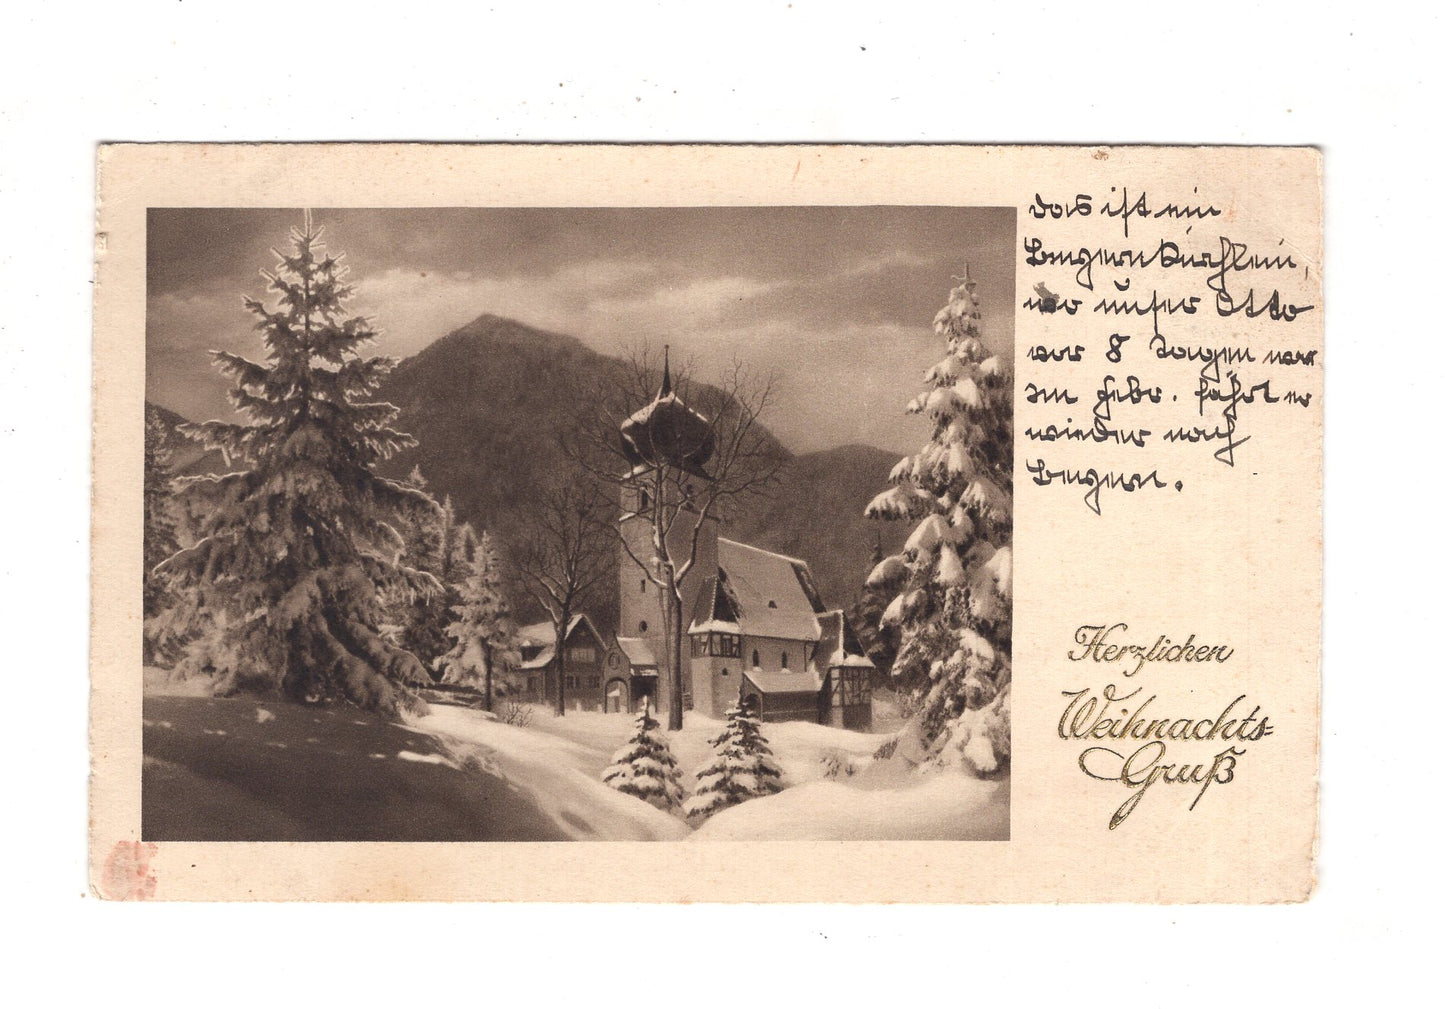 das ist ein
Bayernkirchlein,
wo unser Otto
vor 8 Tagen war
im Febr. fährt er
wieder nach
Bayern.
Herzlichen
Weihnachts-
Gruß